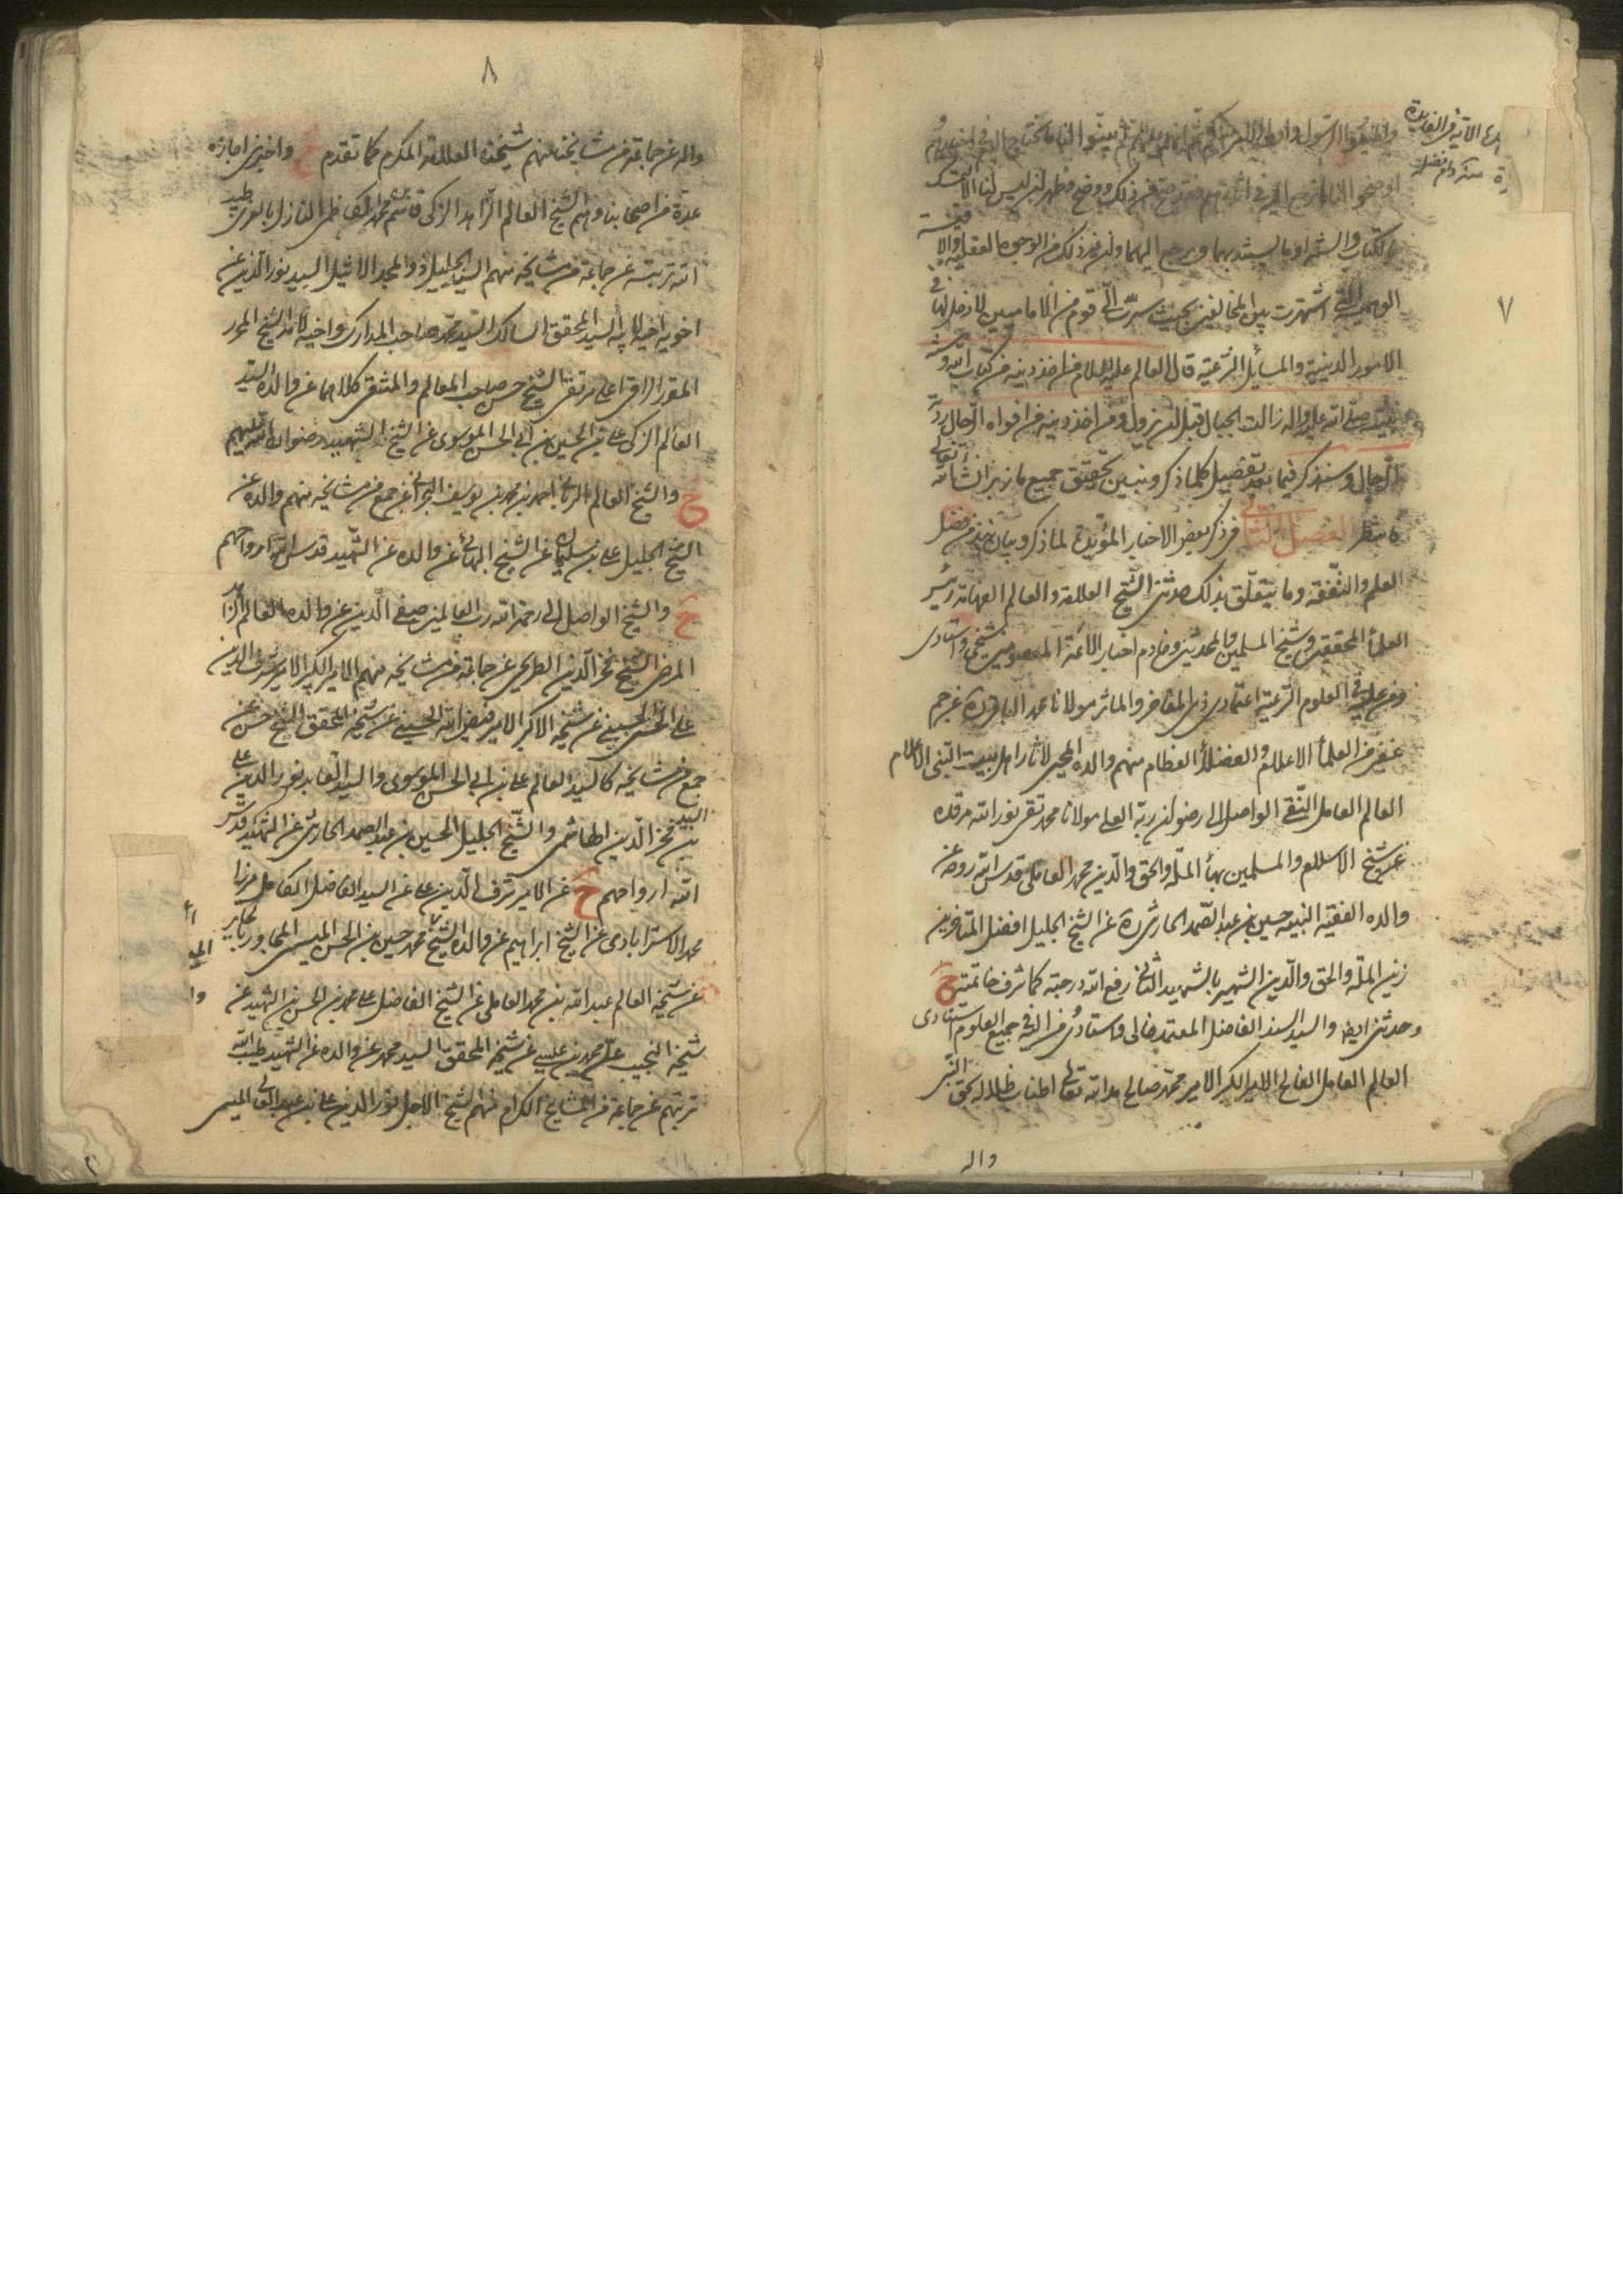 ٧
واطيعوا الرسول واولى الامر منكم ثم انهم
بالكتاب والسنة او ما يستند بهما ويرجع اليهما دون غير ذلك من الوجوه العقلية والا
الوهمية التى اشتهرت بين المخالفين بحيث سرت الى قوم من الاماميين لا دخل لها فى
الامور الدينية والمسائل الشرعية قال العالم عليه السلام من اخذ دينه من كتاب الله وسنة
نبيه صلى الله عليه واله زالت الجبال قبل ان يزول ومن اخذ دينه من افواه الرجال ردته
الرجال وسنذكر فيما بعد تفضيل كلما ذكر ونبين تحقيق جميع ما زبر ان شاء الله تعالى
فانتظر الفصل الثانى فى ذكر بعض الاخبار المؤيدة لما ذكر وبيان نبذ من فضل
العلم والتفقه وما يتعلق بذلك حدثنى الشيخ العلامة والعالم الفهامة رئيس
العلماء المحققين وشيخ المسلمين والمحدثين وخادم اخبار الائمة المعصومين شيخى واستادى
ومن عليه فى العلوم الشرعية اعتمادى ذى المفاخر والماثر مولانا محمد الباقر ره عن جم
غفير من العلماء الاعلام والفضلاء العظام منهم والده المحيى لاثار اهل بيت النبى الاعلام
العالم العامل التقى الواصل الى رضوان ربه العلى مولانا محمد تقى نور الله مرقده
عن شيخ الاسلام والمسلمين بهاء الملة والحق والدين محمد العاملى قدس الله روحه عن
والده الفقيه النبيه حسين بن عبد الصمد الحارثى ره عن الشيخ الجليل افضل المتاخرين
زين الملة والحق والدين الشهير بالشهيد الثانى رفع الله درجته كما شرف خاتمته ح
وحدثنى ايضا والسيد السند الفاضل المعتمد خالى واستادى ومن اليه فى جميع العلوم استنادى
العالم العامل الفالح الامير الكبير الامير محمد صالح مد الله تعالى اطناب ظلاله بحق النبى
واله
٨
واله عن جماعة من مشايخنا منهم شيخنا العلامة المكرم كما تقدم ح واخبرنى اجازة
عدة من اصحابنا وهم الشيخ العالم الزاهد الزكى قاسم بن محمد الكاظمى النازل بالغرى طيب
الله تربته عن جماعة من مشايخه منهم السيد الجليل ذو المجد الاثيل السيد نور الدين عن
اخويه اخيه لابيه السيد المحقق السالك السيد محمد صاحب المدارك واخيه لامه الشيخ المحرر
المقرر الراقى اعلى مرتقى الشيخ حسن صاحب المعالم والمنتقى كلاهما عن والده السيد
العالم الزكى على بن الحسين بن ابى الحسن الموسوى عن الشيخ الشهيد رضوان الله عليهم
ح والشيخ العالم الربانى احمد بن محمد بن يوسف البحرانى عن جمع من مشايخه منهم والده عن
الشيخ الجليل على بن سليمان عن الشيخ البهائى عن والده عن الشهيد قدس الله ارواحهم
ح والشيخ الواصل الى رحمة الله رب العالمين صفى الدين عن والده العالم الزاهد
المرضى الشيخ فخر الدين الطريحى عن جماعة من مشايخه منهم الامير الكبير الامير شرف الدين
على الحسنى الحسينى عن شيخه الاكبر الامير فيض الله الحسينى عن شيخه المحقق الشيخ حسن عن
جمع من مشايخه كالسيد العالم على بن ابى الحسن الموسوى والسيد العابد نور الدين على
بن السيد فخر الدين الهاشمى والشيخ الجليل الحسين بن عبد الصمد الحارثى عن الشهيد قدس
الله ارواحهم ح عن الامير شرف الدين على عن السيد الفاضل الكامل مرزا
محمد الاسترابادى عن الشيخ ابراهيم عن والده الشيخ محمد حسين بن الحسن الميسى المجاور بالحاير
عن شيخه العالم عبد الله بن محمد العاملى عن الشيخ الفاضل على بن محمد بن الحسن بن الشهيد عن
شيخه النجيب على بن محمد بن عيسى عن شيخه المحقق السيد محمد عن والده عن الشهيد طيب الله
تربتهم عن جماعة من المشايخ الكرام منهم الشيخ الاجل نور الدين على بن عبد العالى الميسى